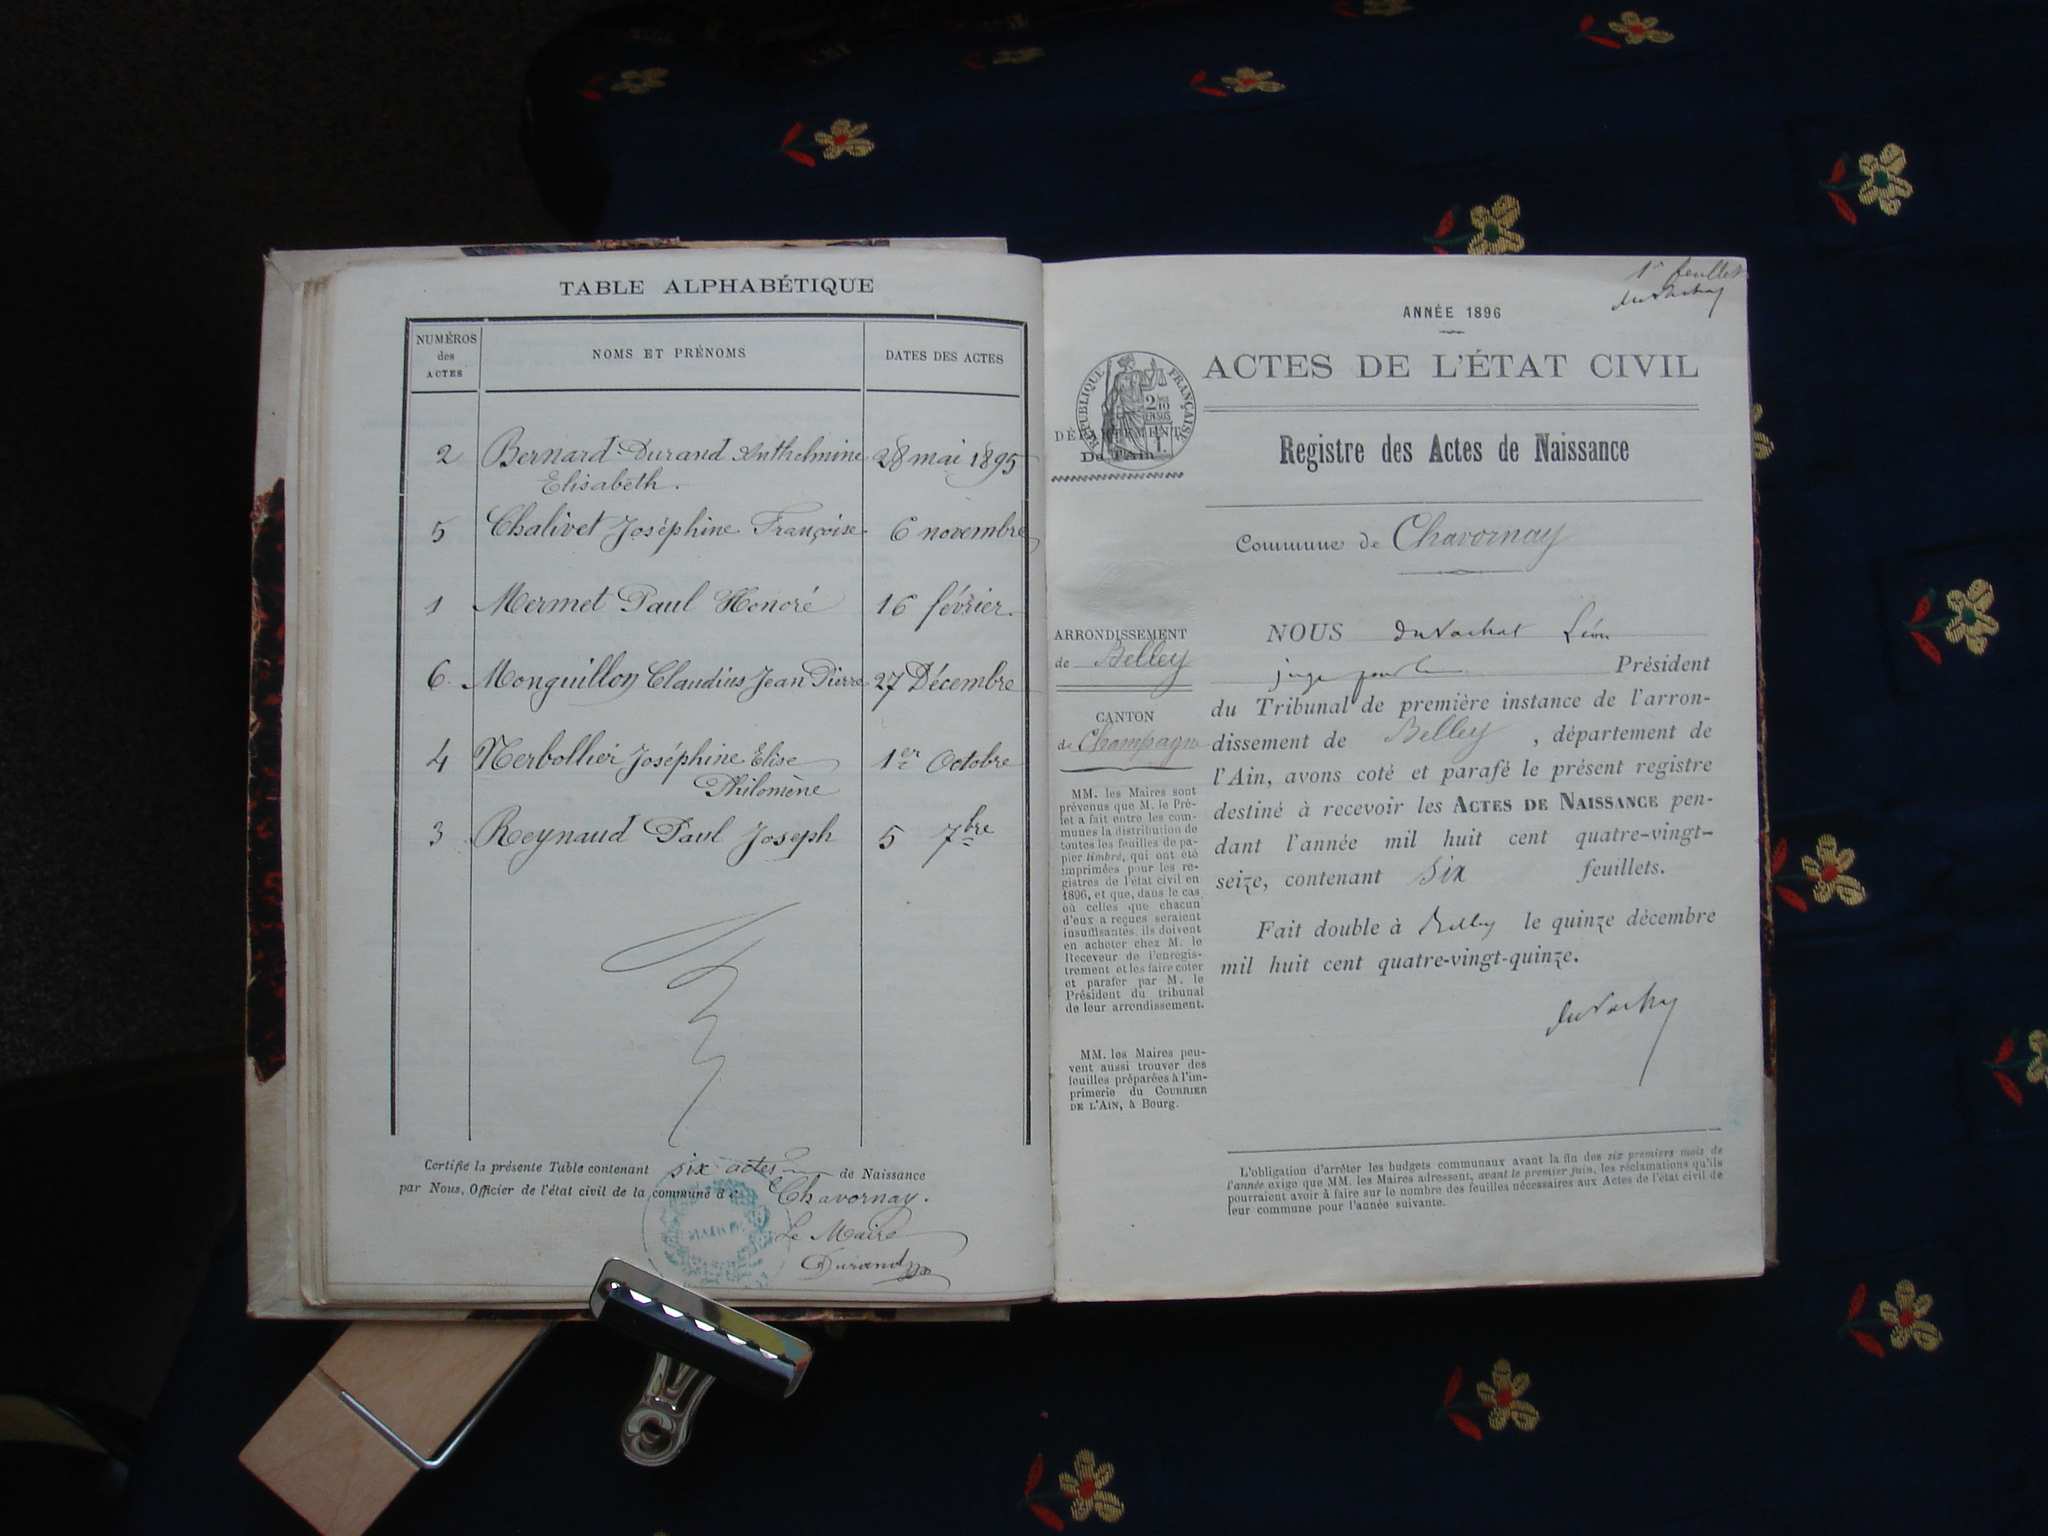 TABLE ALPHABÉTIQUE
NUMÉROS
des
ACTES
NOMS ET PRÉNOMS
DATES DES ACTES
2 Bernard-Durand Anthelmine 28 mai 1895
Elisabeth.
5 Chalivet Joséphine Françoise 6 novembre
1 Mermet Paul Honoré 16 février.
6. Monguillon Claudius Jean Pierre 27 Décembre
4 Nerbollier Joséphine Elise 1er Octobre
Philomène
3 Reynaud Paul Joseph 5 7bre
Certifie la présente Table contenant six actes de Naissance
par Nous, Officier de l'état civil de la commune de Chavornay.
MAIRIE
Le Maire
Durand
1er feuillet
ANNÉE 1896
ACTES DE L'ÉTAT CIVIL
RÉPUBLIQUE FRANÇAISE
2/10
EN SUS
DÉPARTEMENT
De l'Ain
Registre des Actes de Naissance
Commune de Chavornay
ARRONDISSEMENT
de Belley
CANTON
de Champagne
MM. les Maires sont
prévenus que M. le Pré-
fet a fait entre les com-
munes la distribution de
toutes les feuilles de pa-
pier timbré, qui ont été
imprimées pour les re-
gistres de l'état civil en
1896, et que, dans le cas
où celles que chacun
d'eux a reçues seraient
insuffisantes, ils doivent
en acheter chez M. le
Receveur de l'enregis-
trement et les faire coter
et parafer par M. le
Président du tribunal
de leur arrondissement.
MM. les Maires peu-
vent aussi trouver des
feuilles préparées à l'im-
primerie du COURRIER
DE L'AIN, à Bourg.
NOUS duVachat Léon
juge pour le Président
du Tribunal de première instance de l'arron-
dissement de Belley, département de
l'Ain, avons coté et parafé le présent registre
destiné à recevoir les ACTES DE NAISSANCE pen-
dant l'année mil huit cent quatre-vingt-
seize, contenant six feuillets.
Fait double à Belley le quinze décembre
mil huit cent quatre-vingt-quinze.
L'obligation d'arrêter les budgets communaux avant la fin des six premiers mois de
l'année exige que MM. les Maires adressent, avant le premier juin, les réclamations qu'ils
pourraient avoir à faire sur le nombre des feuilles nécessaires aux Actes de l'état civil de
leur commune pour l'année suivante.